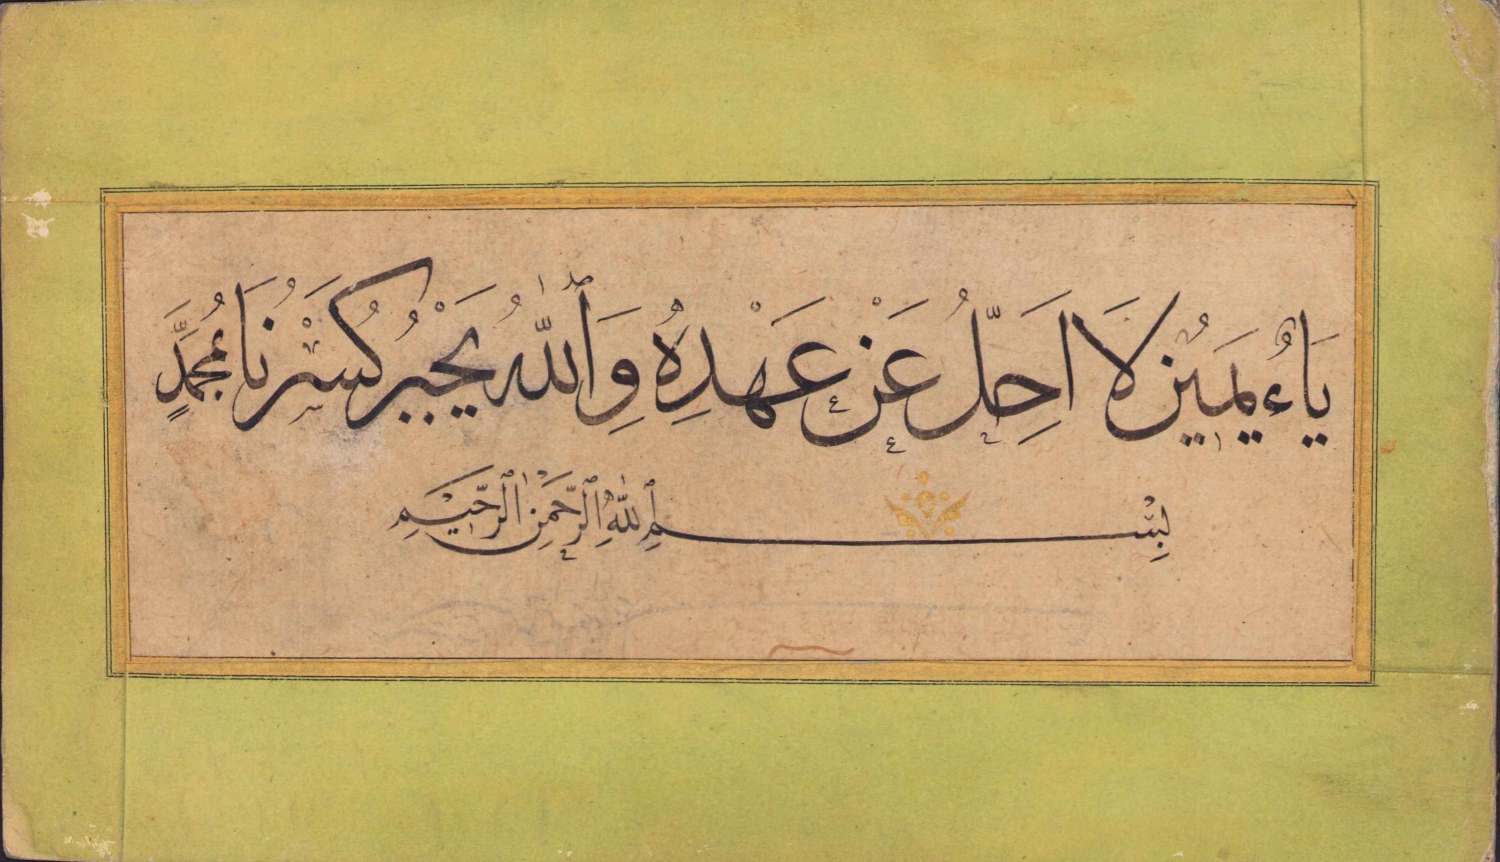 ياء يمين لا احل عن عهده والله يجبر كسرنا بمحمد
بسم الله الرحمن الرحيم